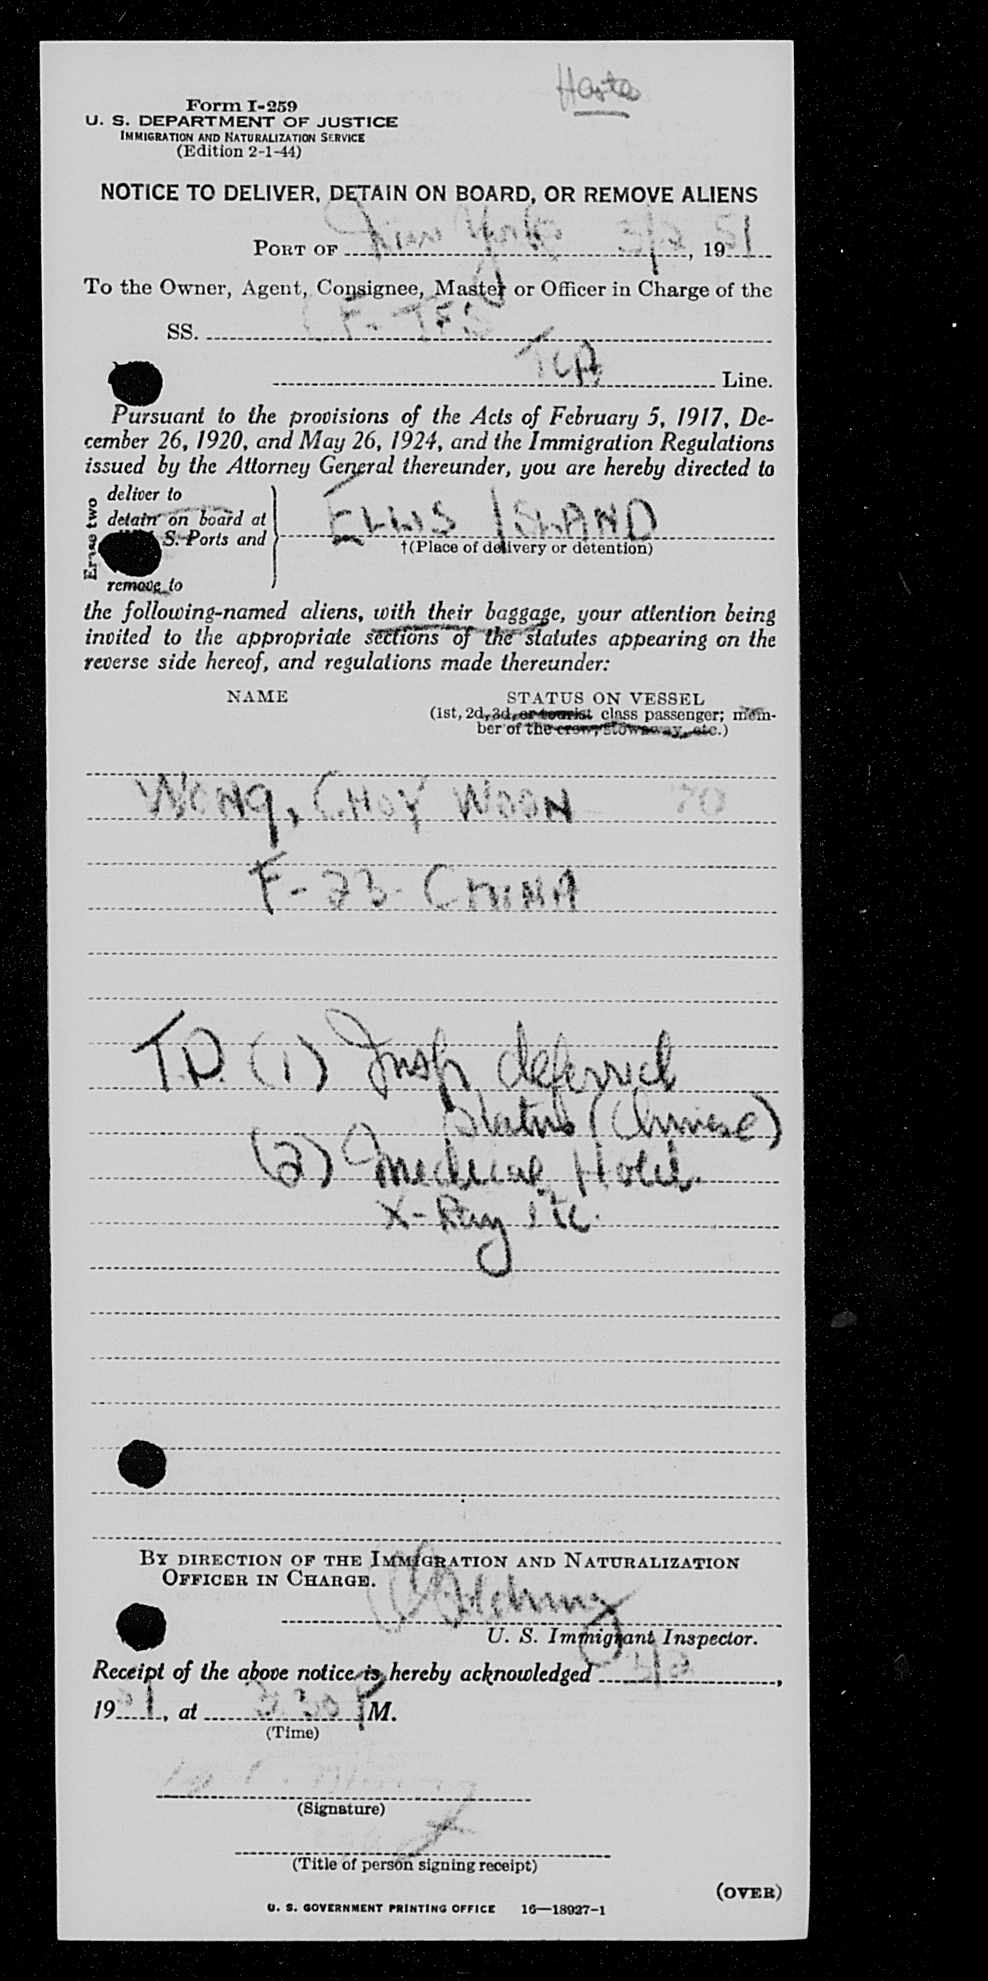 Form I-259
U. S. DEPARTMENT OF JUSTICE
IMMIGRATION AND NATURALIZATION SERVICE
(Edition 2-1-44)
NOTICE TO DELIVER, DETAIN ON BOARD, OR REMOVE ALIENS
PORT OF New York 3/2, 1951
To the Owner, Agent, Consignee, Master or Officer in Charge of the
SS. CF-TFS
TCA Line.
Pursuant to the provisions of the Acts of February 5, 1917, De-
cember 26, 1920, and May 26, 1924, and the Immigration Regulations
issued by the Attorney General thereunder, you are hereby directed to
Erase two
deliver to
detain on board at
S. Ports and
remove to
ELLIS ISLAND
†(Place of delivery or detention)
the following-named aliens, with their baggage, your attention being
invited to the appropriate sections of the statutes appearing on the
reverse side hereof, and regulations made thereunder:
NAME STATUS ON VESSEL
(1st, 2d, 3d, or tourist class passenger; mem-
ber of the crew, stowaway, etc.)
WONG, CHOY WOON 70
F-23-CHINA
T.D. (1) Insp deferred
Status (Chinese)
(2) Medical Hold.
X-Ray etc.
BY DIRECTION OF THE IMMIGRATION AND NATURALIZATION
OFFICER IN CHARGE.
U. S. Immigrant Inspector.
Receipt of the above notice is hereby acknowledged 3/2,
1951, at 3:30 P M.
(Time)
(Signature)
(Title of person signing receipt)
(OVER)
U. S. GOVERNMENT PRINTING OFFICE 16—18927-1